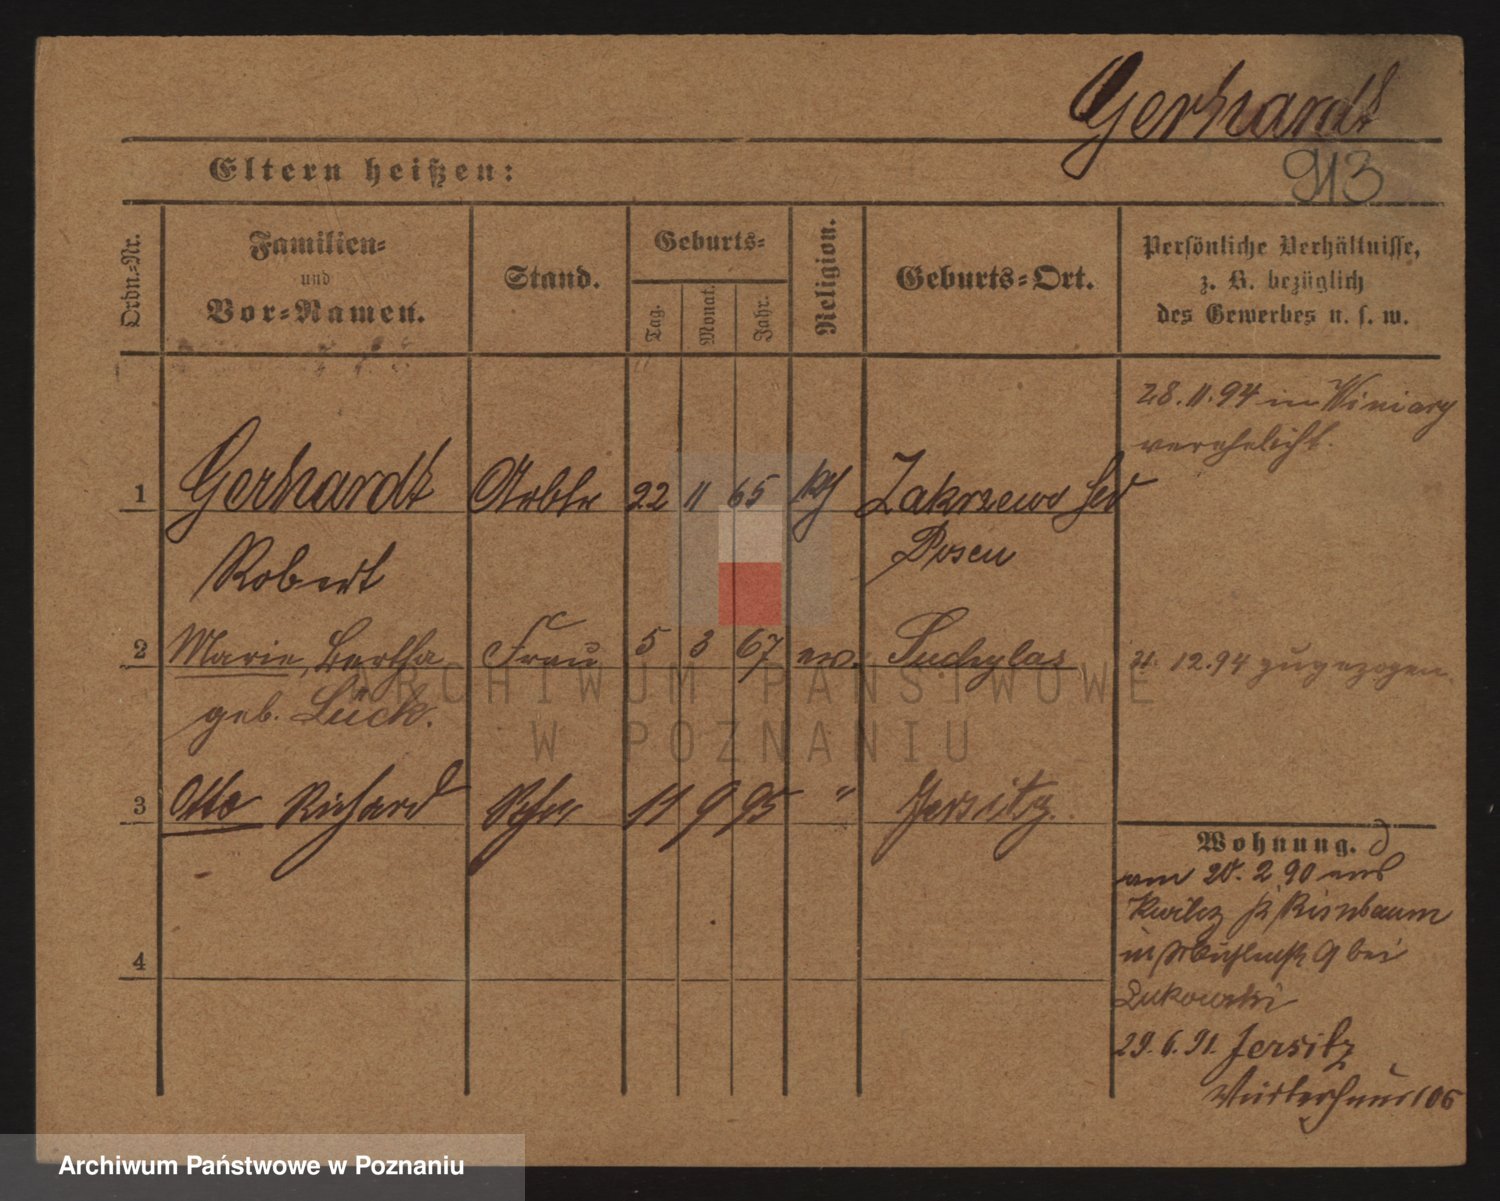 Gerhardt
913
Eltern heißen:
Ordn.-Nr.
Familien-
und
Vor-Namen.
Stand.
Geburts-
Tag.
Monat.
Jahr.
Religion.
Geburts-Ort.
Persönliche Verhältnisse,
z. B. bezüglich
des Gewerbes u. s. w.
28. 11. 94 in Winiary
verehelicht.
1 Gerhardt Arbtr 22 11 65 Zakrzewo
Robert Posen
2 Marie, Bertha Frau 5 3 67 ev. Suchylas
geb. Lück.
12.94 zugezogen
3 Otto Richard 11 9 95 " Jersitz.
4
Wohnung.
am 20. 2 90 aus
Kwilcz
in 9 bei
Lukowski
29. 6. 91. Jersitz
106
ARCHIWUM PAŃSTWOWE
W POZNANIU
Archiwum Państwowe w Poznaniu